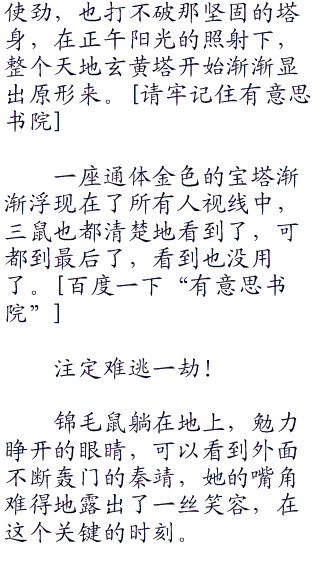 使劲，也打不破那坚固的塔
身，在正午阳光的照射下，
整个天地玄黄塔开始渐渐显
出原形来。[请牢记住有意思
书院]
一座通体金色的宝塔渐
渐浮现在了所有人视线中，
三鼠也都清楚地看到了，可
都到最后了，看到也没用
了。[百度一下“有意思书
院”]
注定难逃一劫！
锦毛鼠躺在地上，勉力
睁开的眼睛，可以看到外面
不断轰门的秦靖，她的嘴角
难得地露出了一丝笑容，在
这个关键的时刻。